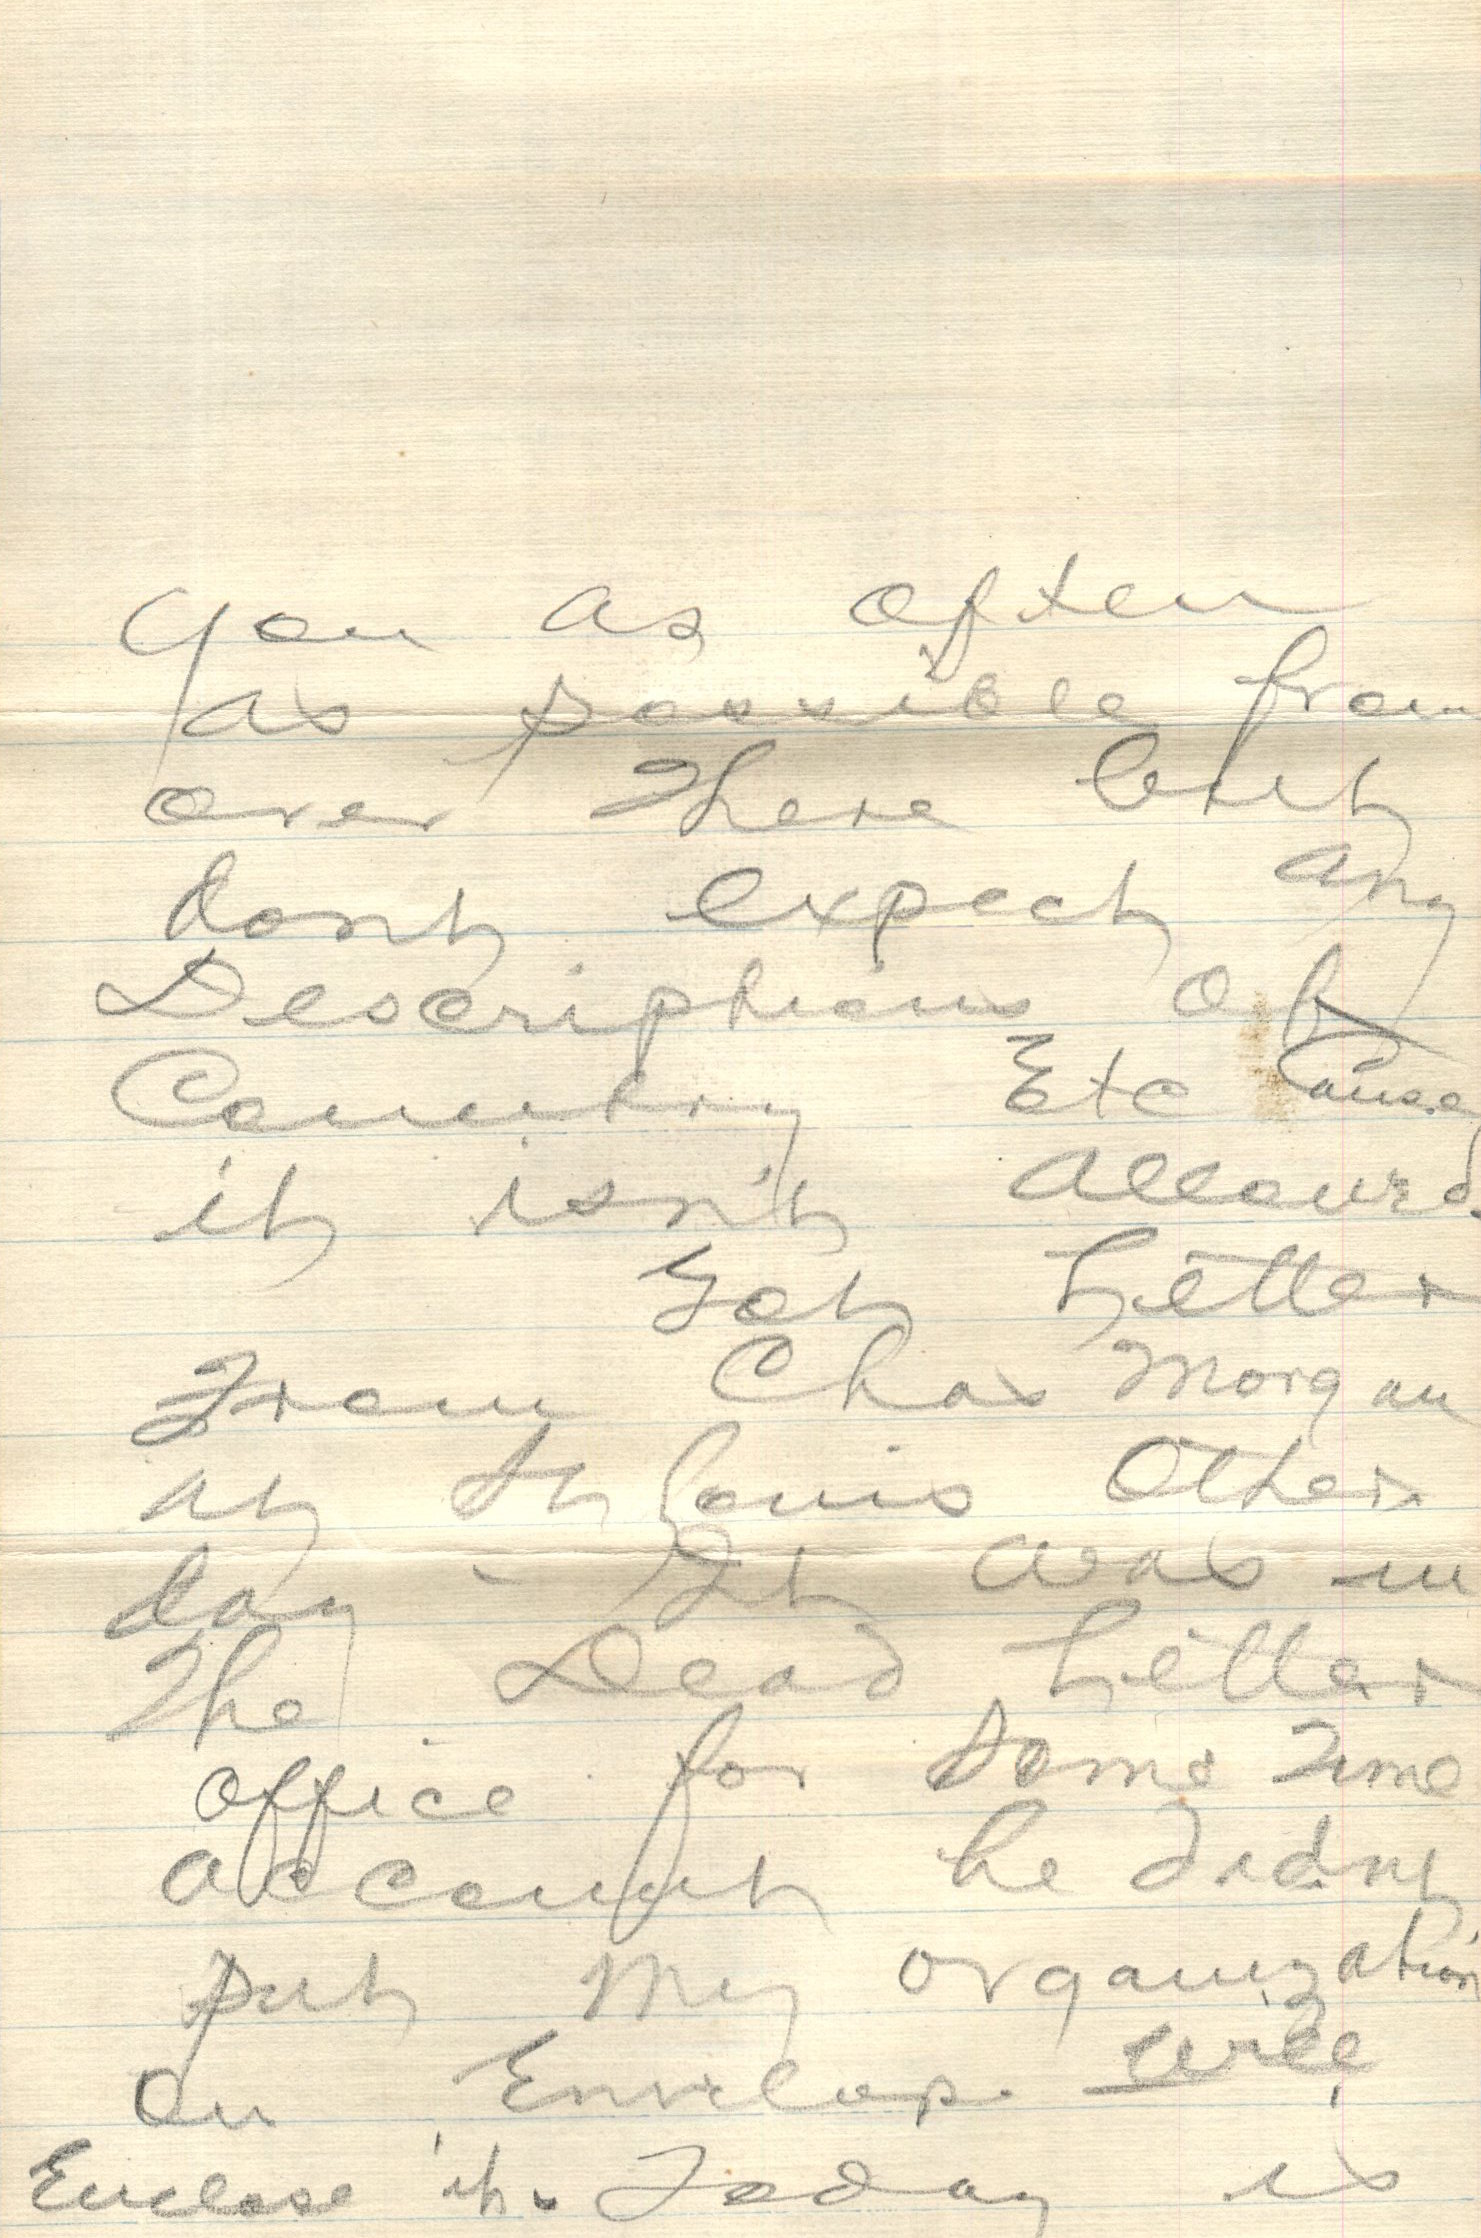 you as often
as possible from
over there but
dont expect any
Descriptions of
Country Etc Cause
it isn't allowed.
Got Letter
From Chas Morgan
at St Louis Other
day - It was in
The Dead Letter
office for some Time
account he didnt
put my organization
on Envelop. will
Enclose it. Today is